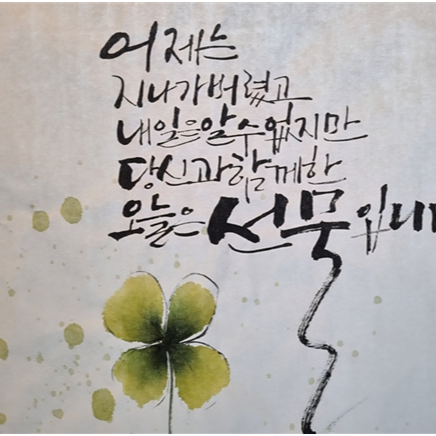 어제는
지나가버렸고
내일은알수없지만
당신과함께한
오늘은선물입니